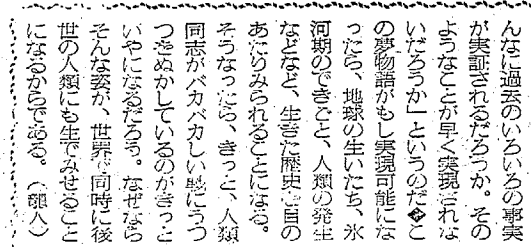 んなに過去のいろいろの事実
が実証されるだろうか。その
ようなことが早く実現されな
いだろうか」というのだ◆こ
の夢物語がもし実現可能にな
ったら、地球の生いたち、氷
河期のできごと、人類の発生
などなど、生きた歴史を目の
あたりみられることになる。
そうなったら、きっと、人類
同志がバカバカしい戦にうつ
つをぬかしているのがきっと
いやになるだろう。なぜなら
そんな姿が、世界で同時に後
世の人類にも生でみせること
になるからである。（隣人）